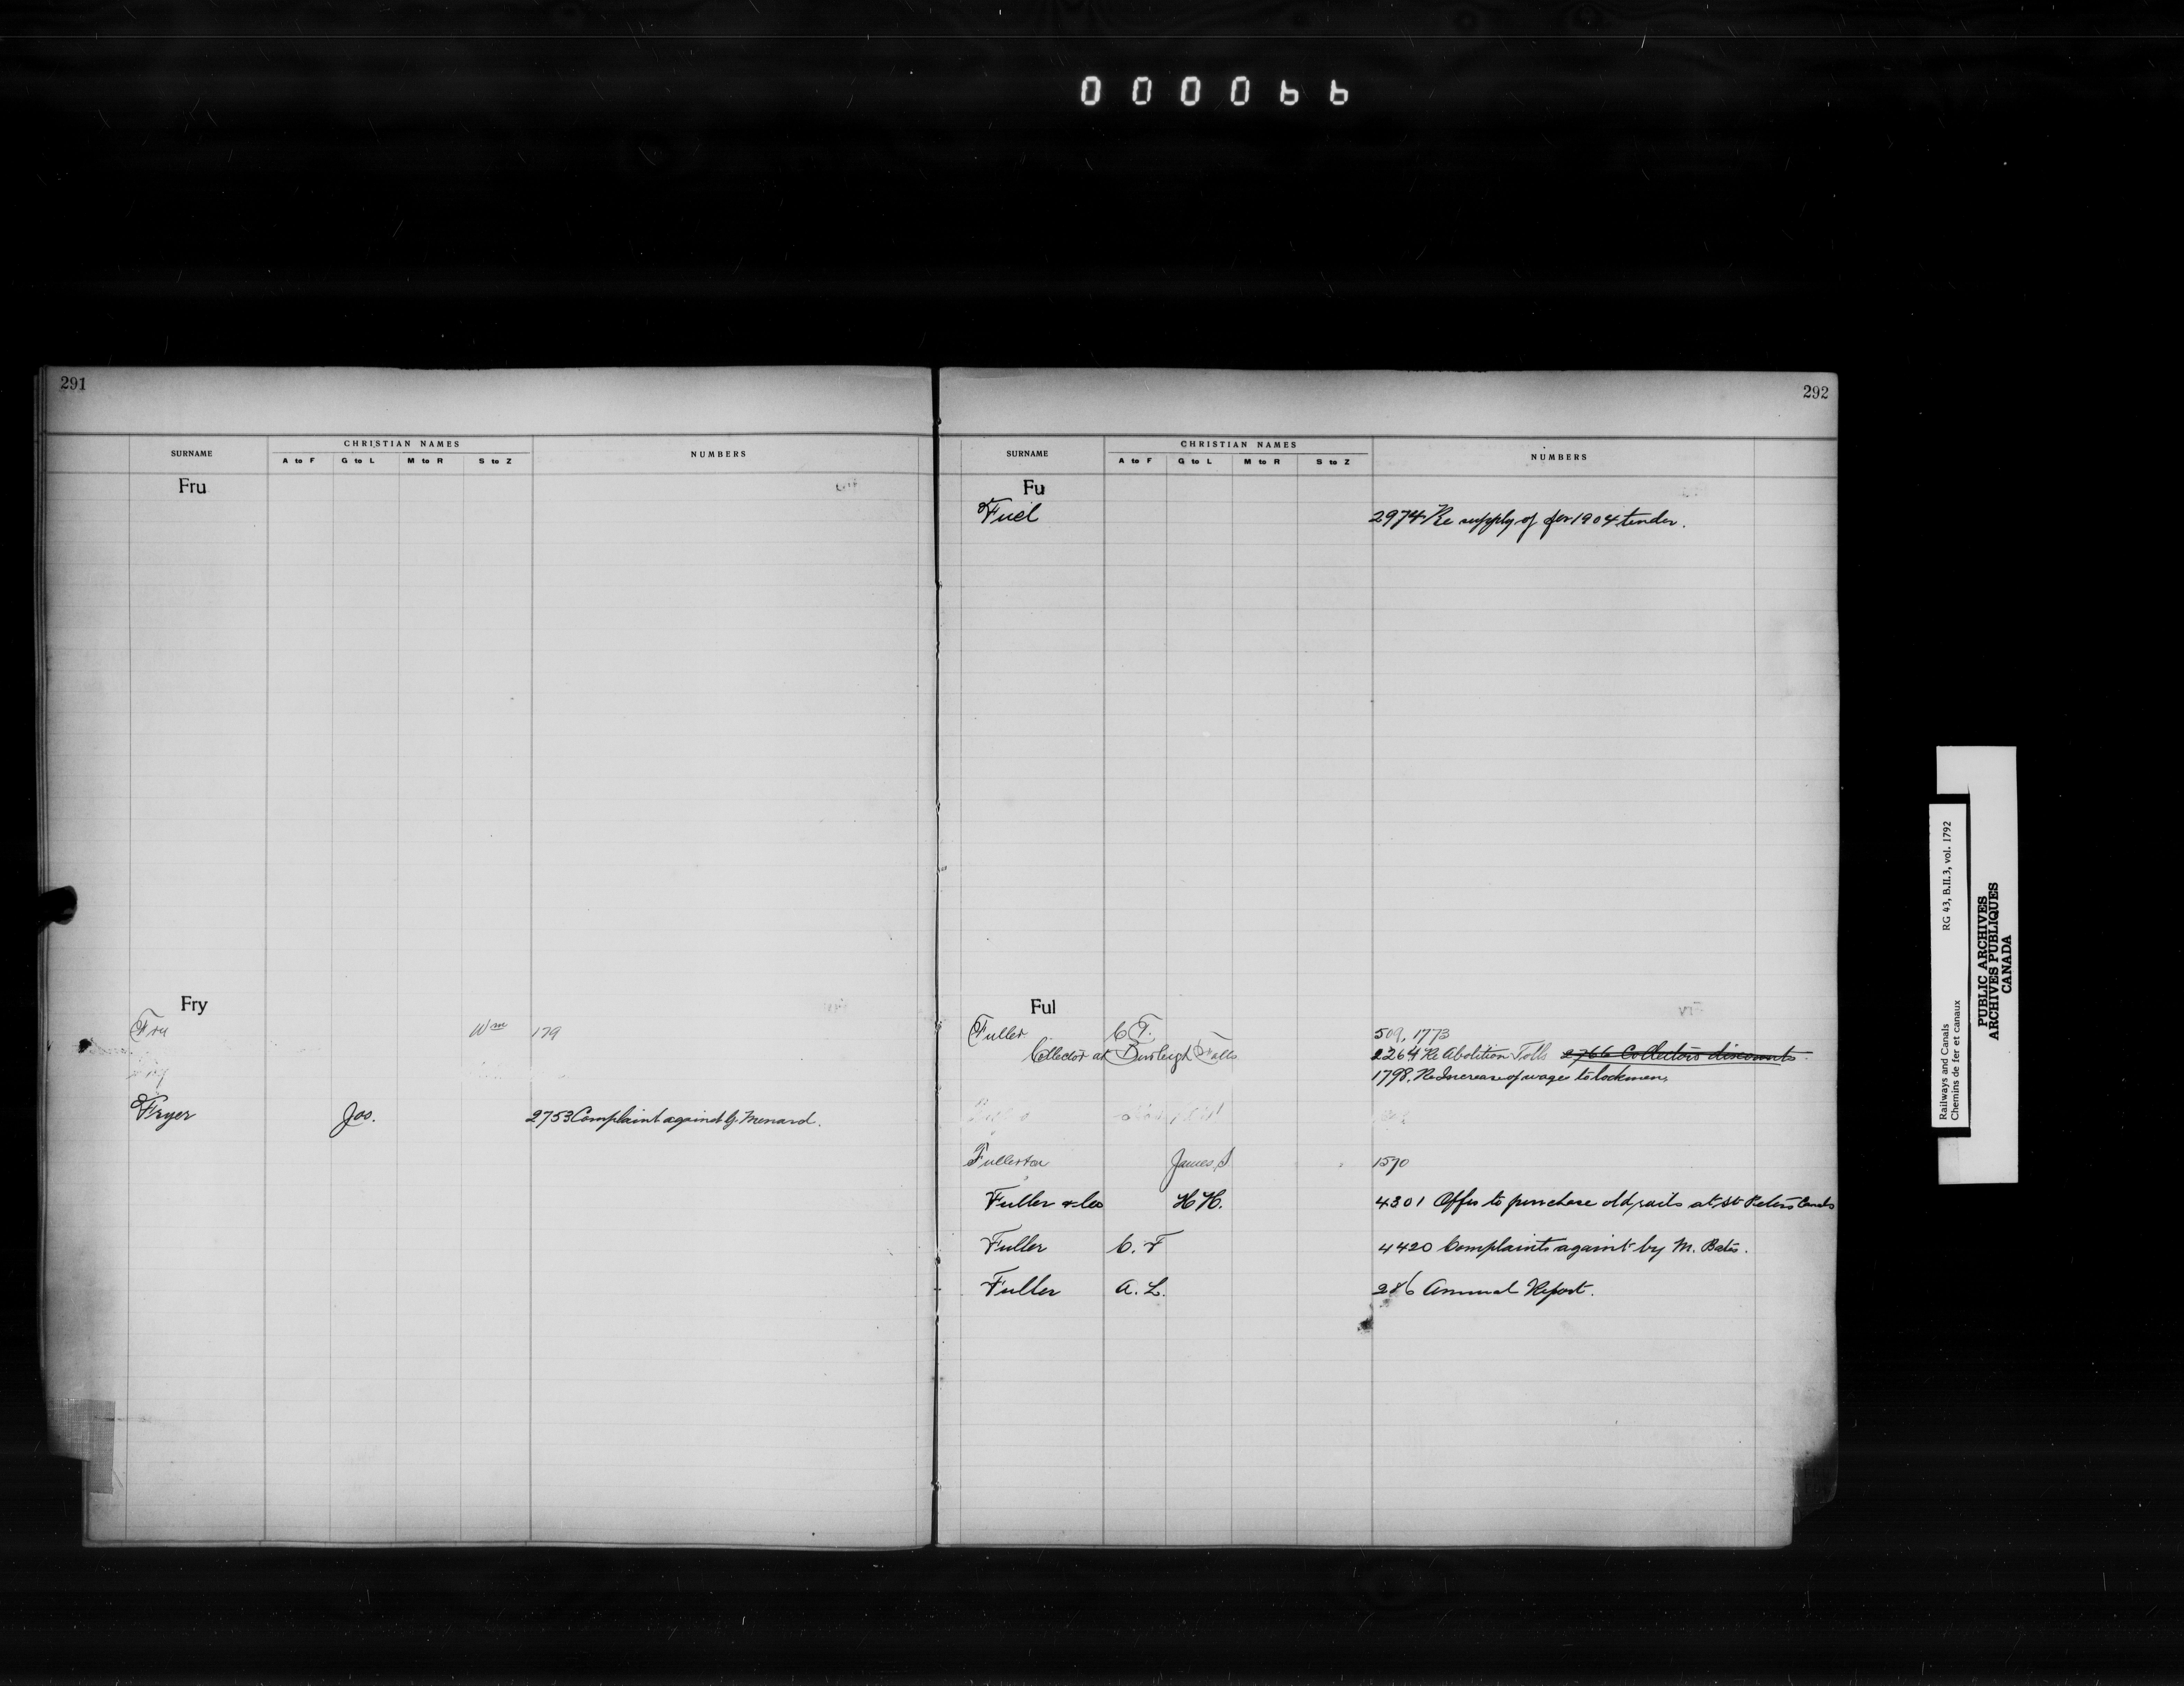 000066
291
SURNAME
CHRISTIAN NAMES
A to F G to L M to R S to Z
NUMBERS
Fru
Fry
Wm 179
Fryer Jos. 2753 Complaint against G. Menard.
292
SURNAME
CHRISTIAN NAMES
A to F G to L M to R S to Z
NUMBERS
Fu
Fuel 2974 Re supply of for 1904 tender.
Ful
Fuller C.F. 509, 1773
Collector at Burleigh Falls 2264 Re Abolition Tolls 2766 Collectors discounts.
1798. Re Increase of wage to lockmen,
Fullerton James S 1570
Fuller & Co H H. 4301 Offer to purchase old rails at St Peters Canals
Fuller C. F 4420 Complaints against by M. Bates.
Fuller A. L. 286 Annual Report.
Railways and Canals RG 43, B.II.3, vol. 1792
Chemins de fer et canaux
PUBLIC ARCHIVES
ARCHIVES PUBLIQUES
CANADA